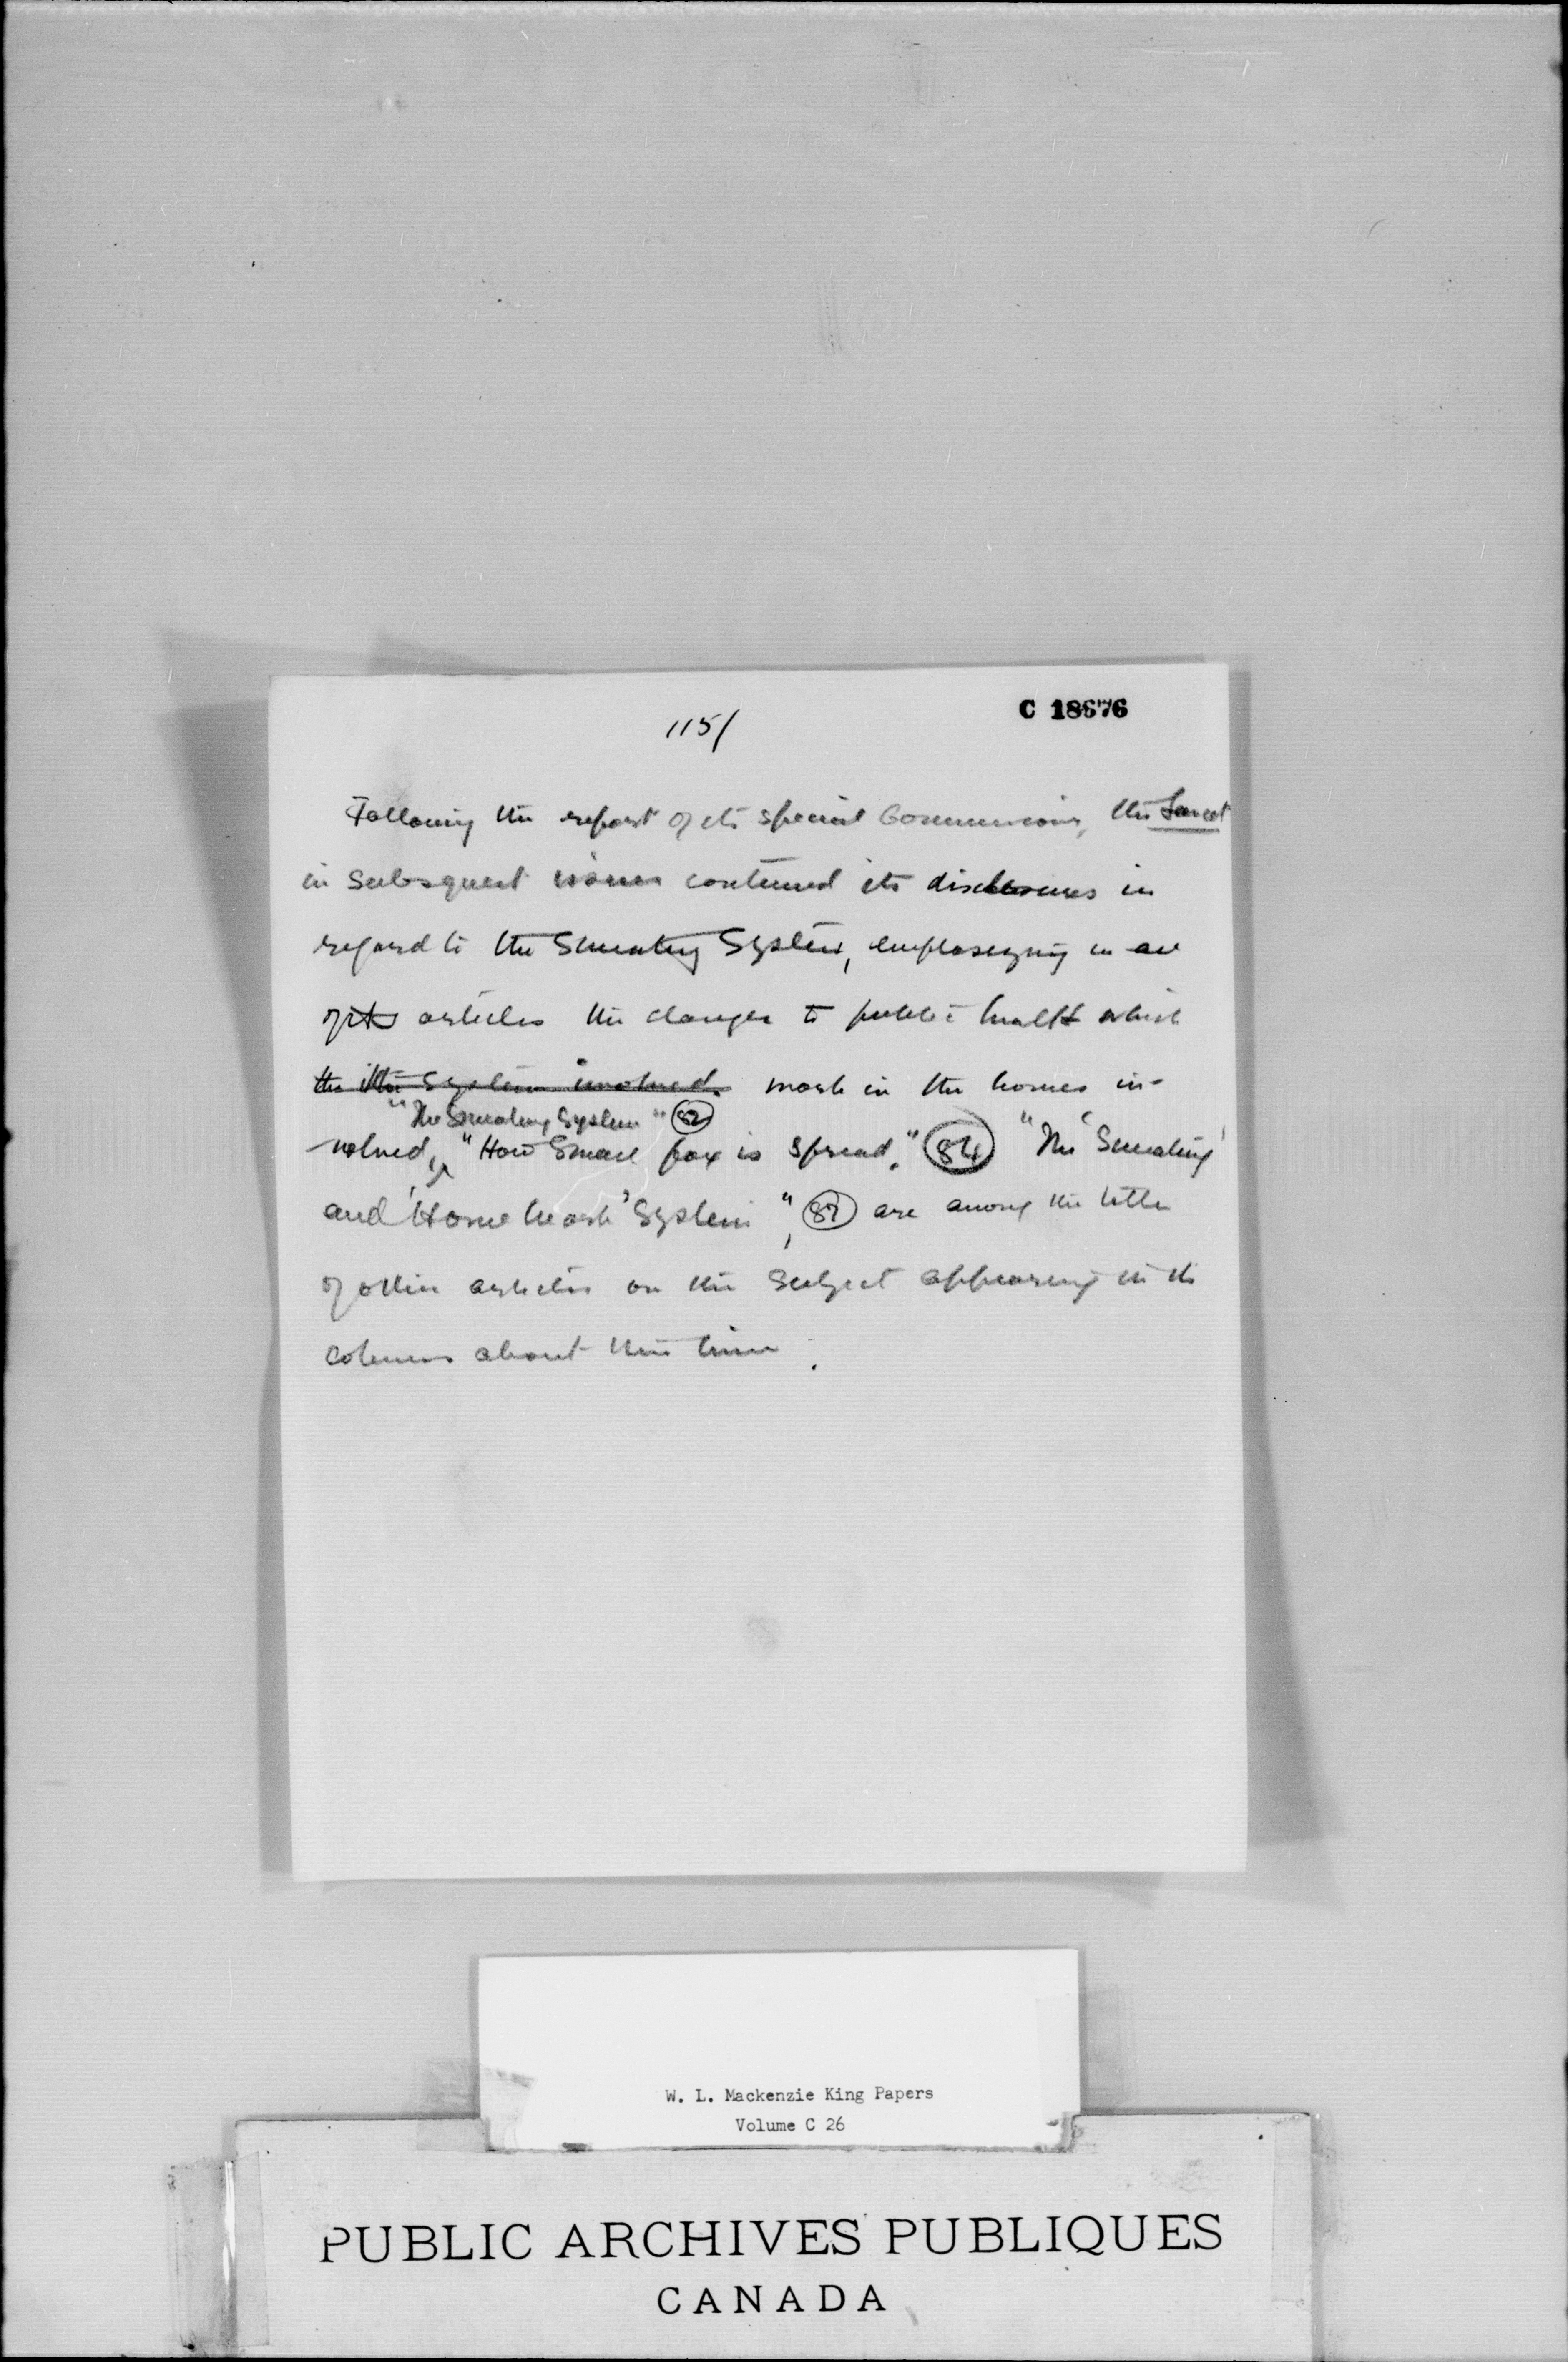 115/
C 18676
Following the report of its special Commission, the Lancet
in subsequent issues continued its disclosures in
regard to the Sweating System, emphasizing in all
of its articles the danger to public health which
the the system involved. work in the homes in-
"The Sweating System" 82
volved, "How Small pox is spread," 84 "The 'Sweating'
and 'Home Work' System", are among the titles
of other articles on the subject appearing in its
columns about this time.
W. L. Mackenzie King Papers
Volume C 26
PUBLIC ARCHIVES PUBLIQUES
CANADA